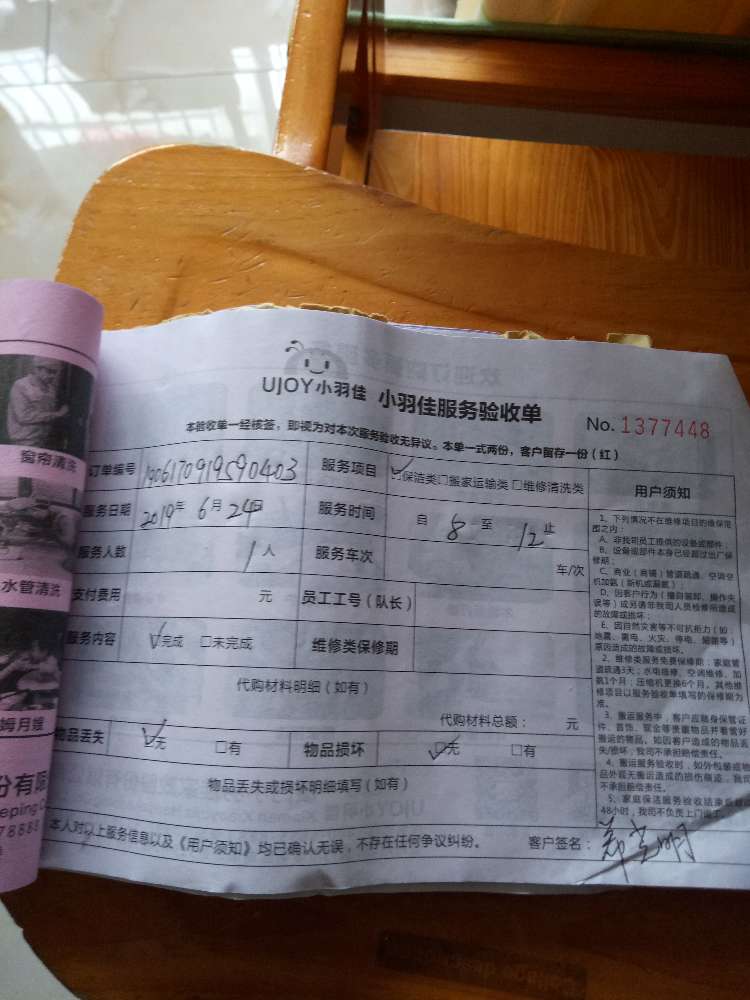 UJOY小羽佳 小羽佳服务验收单
No. 1377448
本验收单一经核签，即视为对本次服务验收无异议。本单一式两份，客户留存一份（红）
订单编号 190617091959040​3
服务项目 保洁类□搬家运输类 □维修清洗类
用户须知
服务日期 2019年 6月 24日
服务时间 自 8 至 12止
服务人数 1人
服务车次 车/次
支付费用 元
员工工号（队长）
服务内容 完成 □未完成
维修类保修期
代购材料明细（如有）
代购材料总额： 元
物品丢失 无 □有
物品损坏 □无 □有
物品丢失或损坏明细填写（如有）
本人对以上服务信息以及《用户须知》均已确认无误，不存在任何争议纠纷。
客户签名：
1、下列情况不在维修项目的维保范
围之内：
A、非我司员工提供的设备或部件；
B、设备或部件本身已经超过出厂保
修期；
C、商业（商铺）管道疏通、空调空
机加氨（新机或漏氟）；
D、因客户行为（擅自装卸、操作失
误等）或另请非我司人员检修所造成
的故障或损坏；
E、因自然灾害等不可抗拒力（如：
地震、雷电、火灾、停电、短路等）
原因造成的故障或损坏。
2、维修类服务免费保修期：家庭管
道疏通3天；水电维修、空调维修、加
氨1个月；压缩机更换6个月。其他维
修项目以服务验收单填写的保修期为
准。
3、搬运服务中，客户应随身保管证
件、首饰、现金等贵重物品并看管好
搬运的物品。如因客户造成的物品丢
失/损坏，我司不承担赔偿责任。
4、搬运服务验收时，如外包装或物
品外观无搬运造成的损伤痕迹，我司
不承担赔偿责任。
5、家庭保洁服务验收结束后超
48小时，我司不负责上门
窗帘清洗
水管清洗
姆月嫂
份有限
eeping C
78888